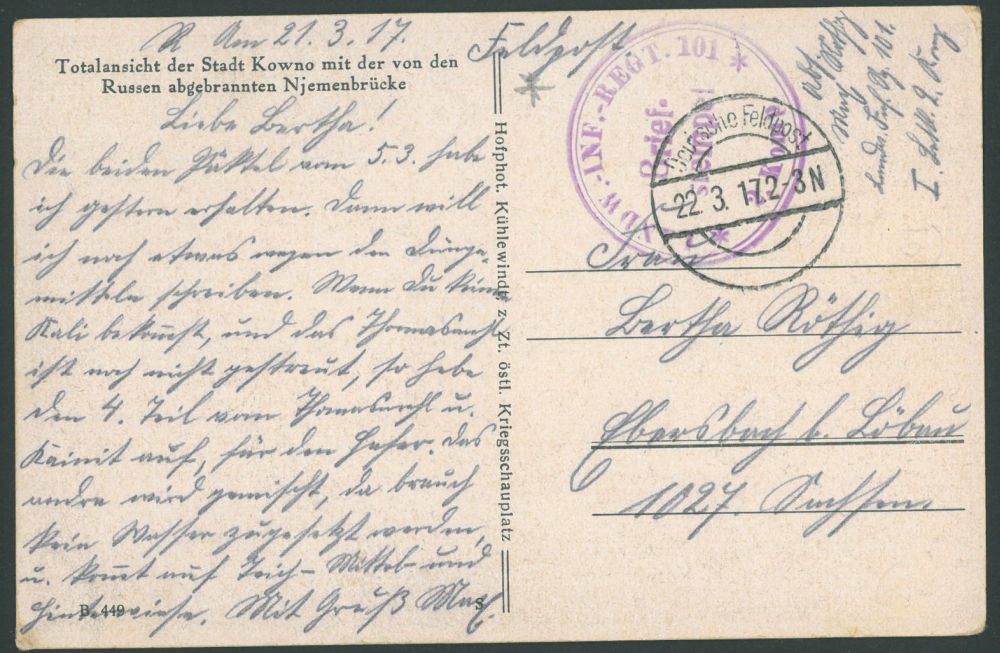 R Am 21. 3. 17.
Totalansicht der Stadt Kowno mit der von den
Russen abgebrannten Njemenbrücke
Liebe Bertha!
Die beiden Päktel vom 5.3. habe
ich gestern erhalten. Dann will
ich noch etwas wegen den Dünge-
mitteln schreiben. Wenn Du kein
Kali bekomst, und das Thomasmehl
ist noch nicht gestreut, so hebe
den 4. Teil vom Thomasmehl u.
Kainit auf, für den Hafer. Das
andre wird gemischt, da brauch
kein Wasser zugesetzt werden,
u. komt auf Teich- Mittel- und
Hinterwiese. Mit Gruß Max.
B. 449
S.
Hofphot. Kühlewindt, z. Zt. östl. Kriegsschauplatz
Feldpost
LDW.-INF.-REGT. 101
Brief-
stempel
Deutsche Feldpost
22. 3. 17 2-3 N
Abs.
101.
I. 2. Komp
Frau
Bertha Röthig
Ebersbach b. Löbau
1027. Sachsen.